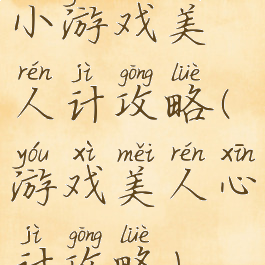 小游戏美
rén jì gōng lüè
人计攻略(
yóu xì měi rén xīn
游戏美人心
jì gōng lüè
计攻略)